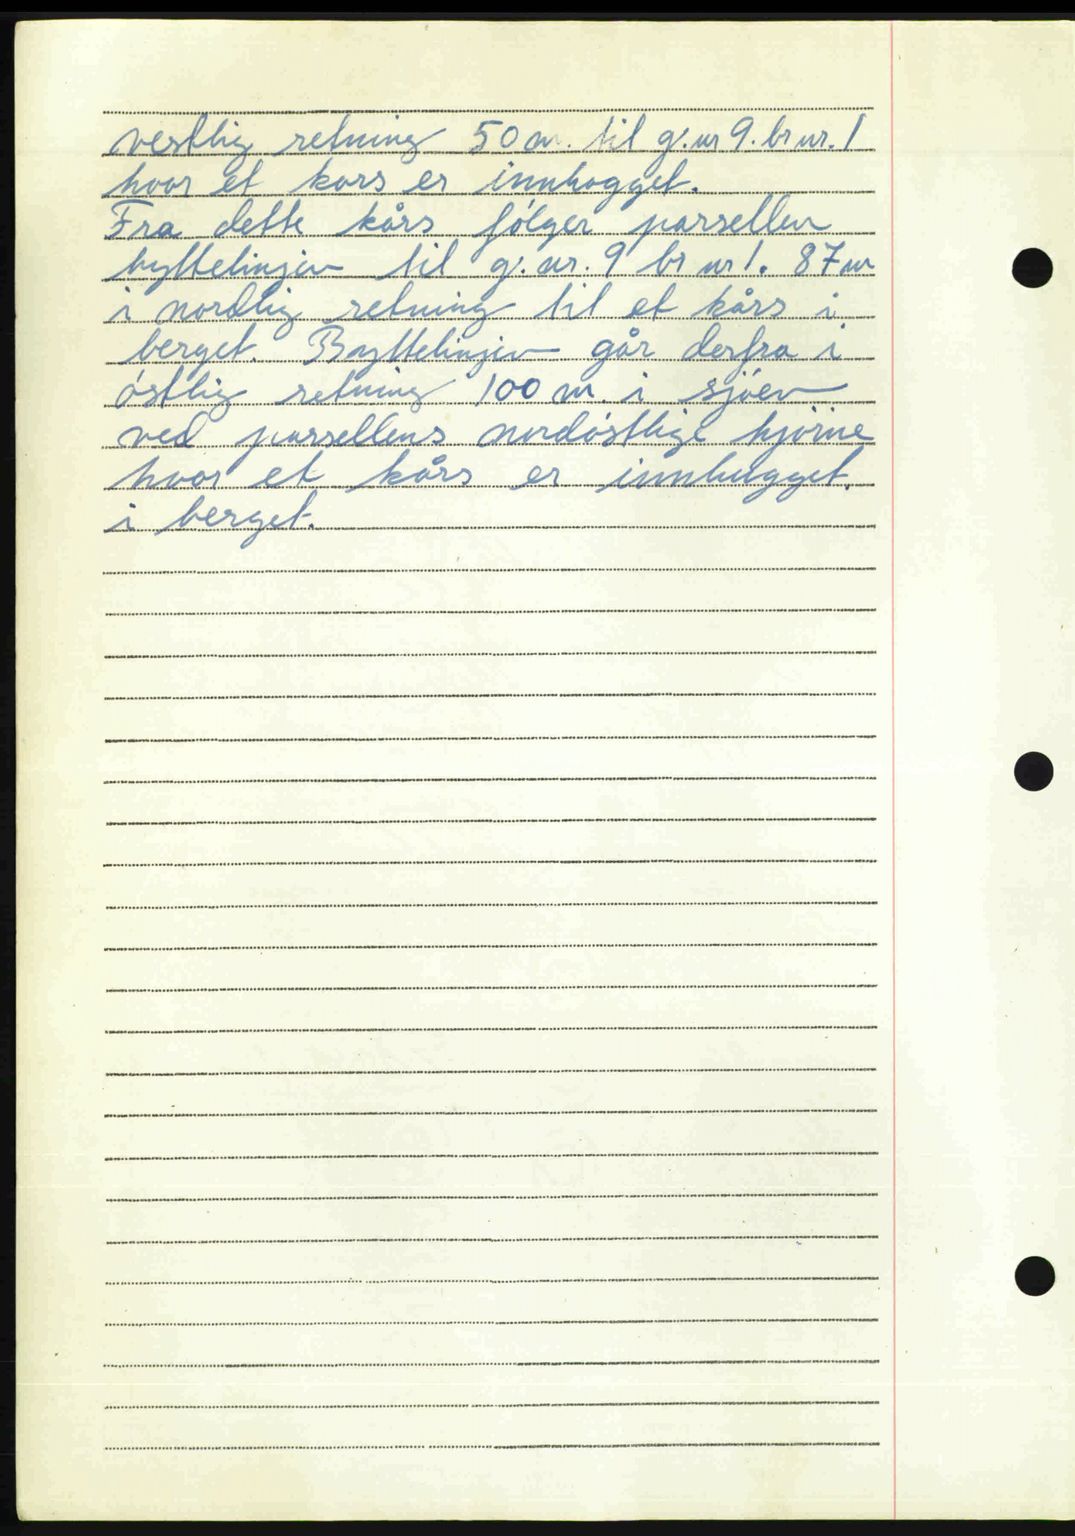 vestlig retning 50 m. til g.nr 9. br nr. 1
hvor et kors er innhogget.
Fra dette kårs følger parsellen
byttelinjen til g. nr. 9 br nr 1. 87 m
i nordlig retning til et kårs i
berget. Byttelinjen går derfra i
østlig retning 100 m. i sjøen
ved parsellens nordøstlige hjørne
hvor et kårs er innhugget.
i berget.